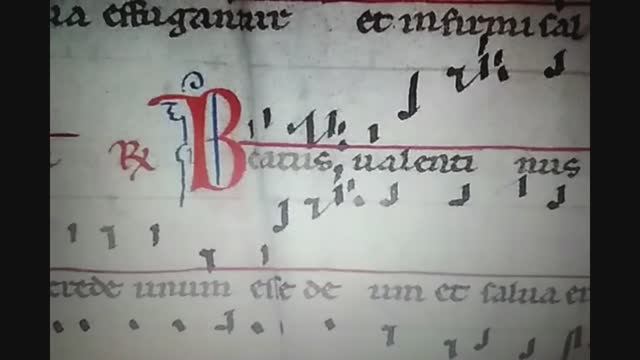 ua effugantur et infirmi sal
℟ Beatus ualenti nus
crede unum esse de um et salua er